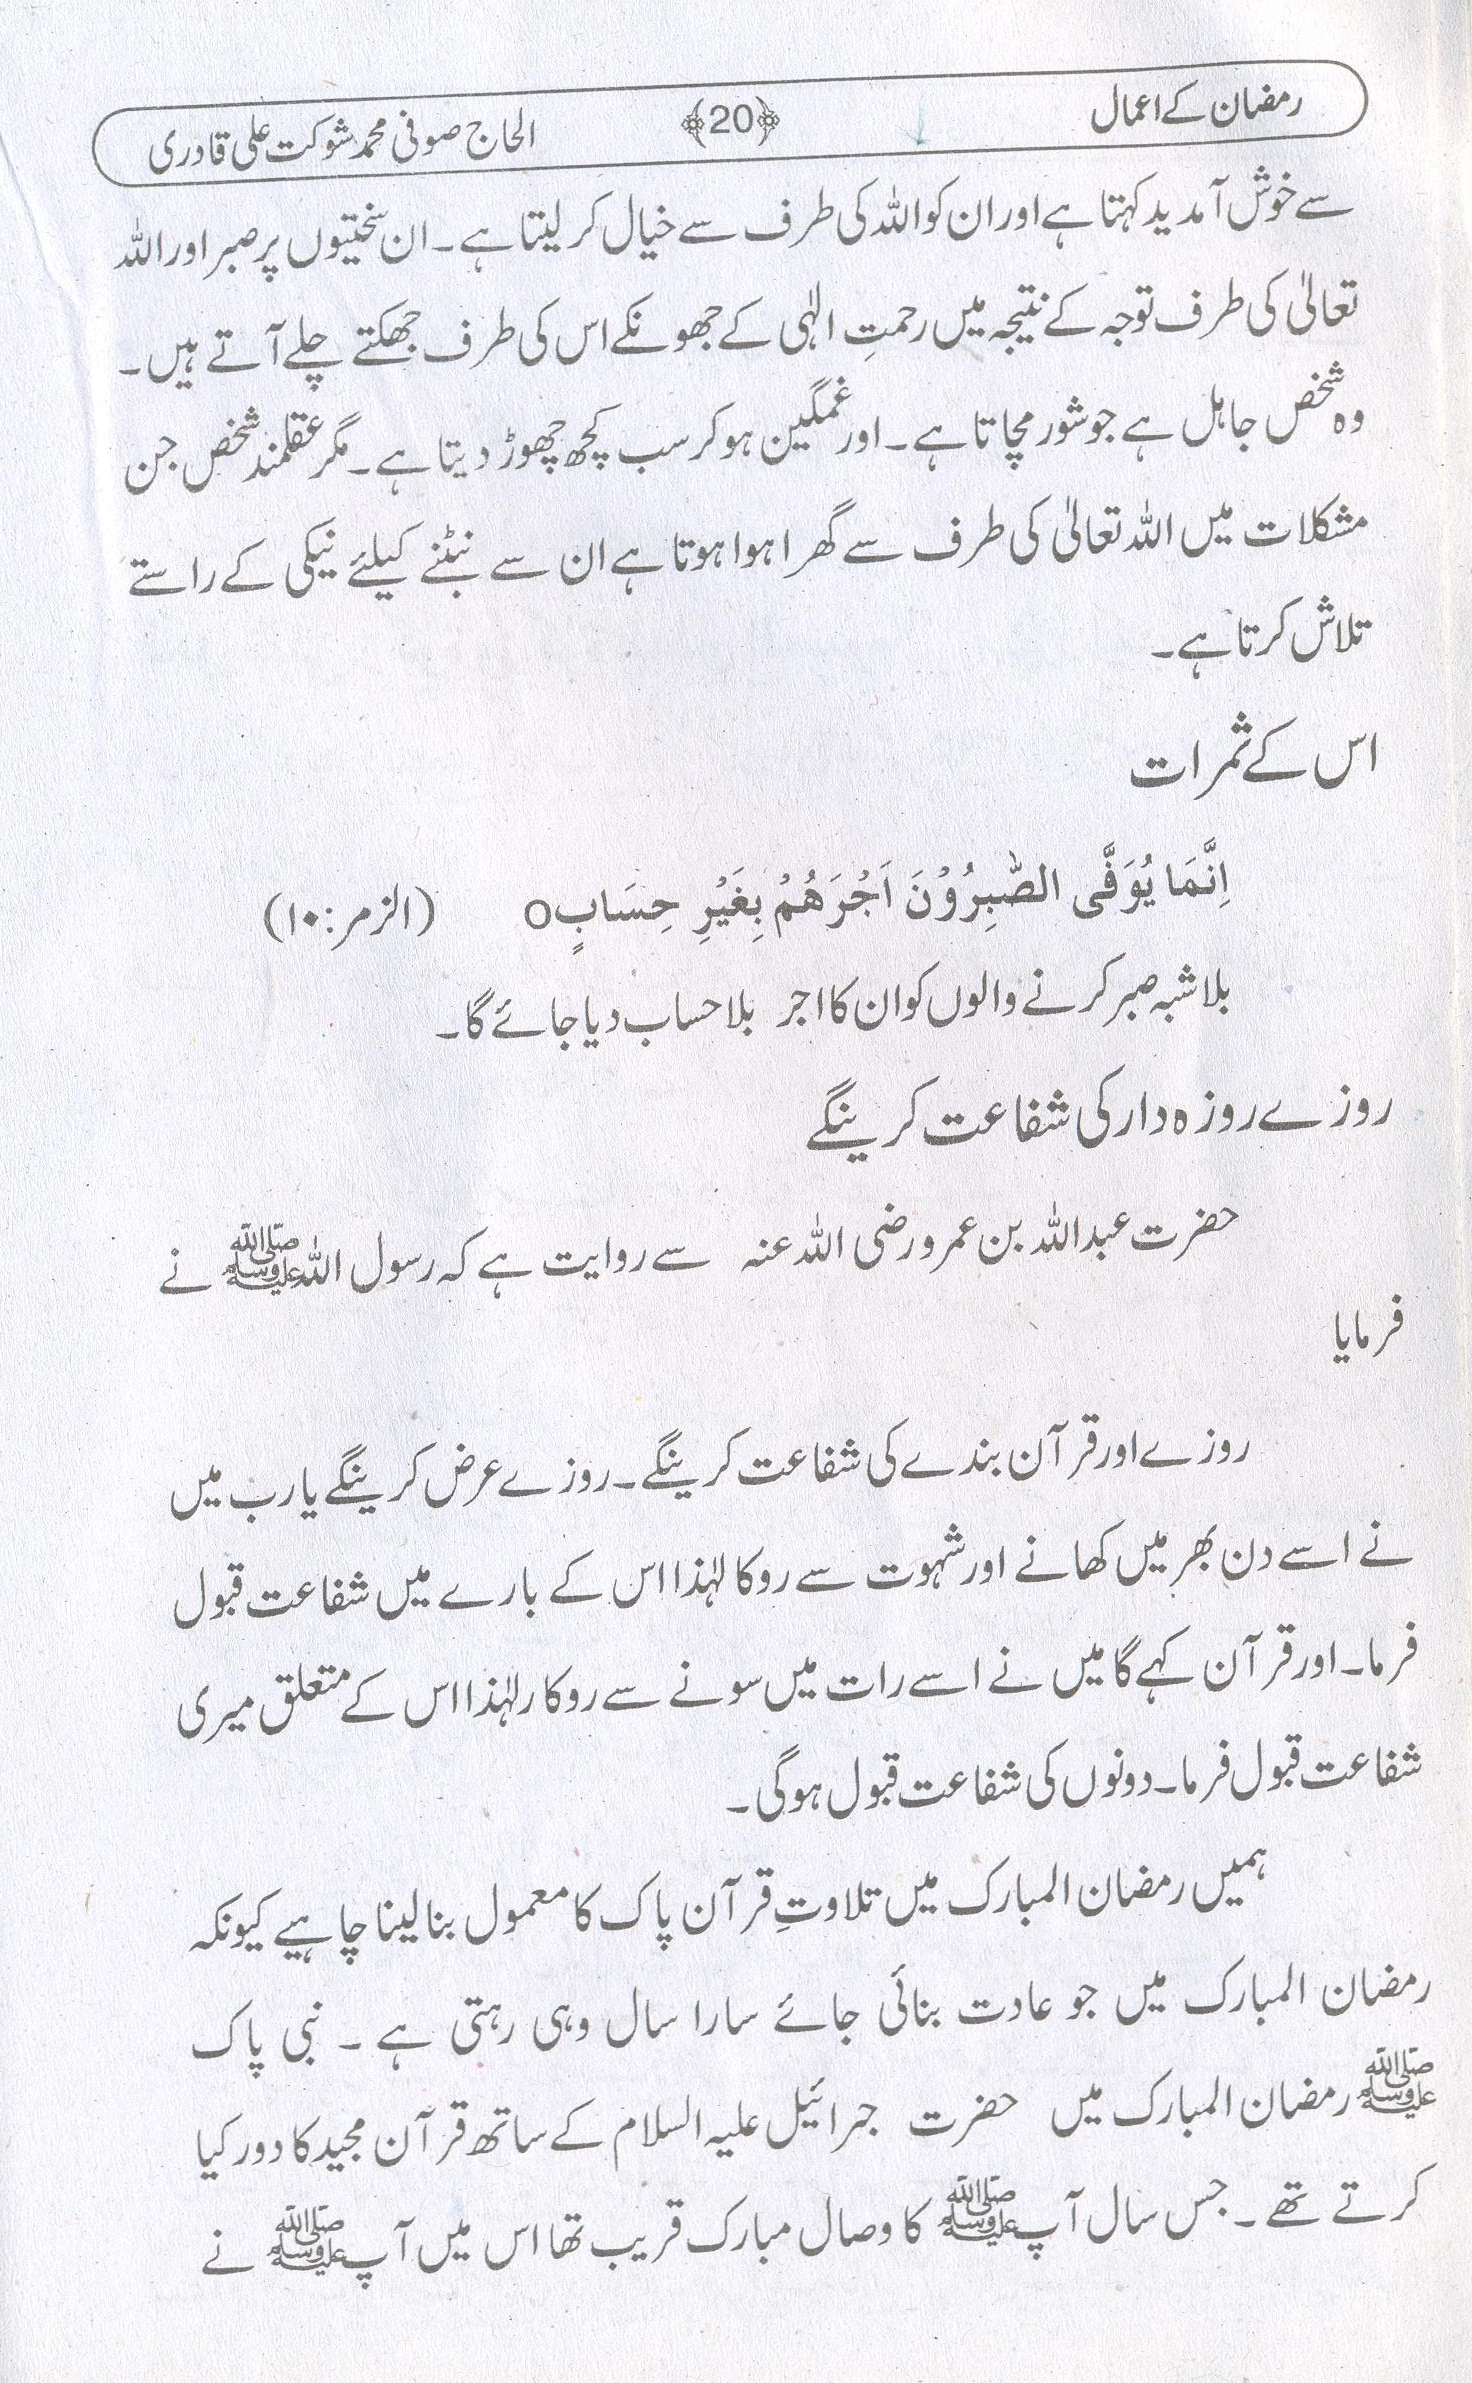 رمضان کے اعمال ﴿20﴾ الحاج صوفی محمد شوکت علی قادری
سے خوش آمدید کہتا ہے اور ان کو اللہ کی طرف سے خیال کر لیتا ہے۔ ان سختیوں پر صبر اور اللہ
تعالٰی کی طرف توجہ کے نتیجہ میں رحمتِ الٰہی کے جھونکے اس کی طرف جھکتے چلے آتے ہیں۔
وہ شخص جاہل ہے جو شور مچاتا ہے۔ اور غمگین ہو کر سب کچھ چھوڑ دیتا ہے۔ مگر عقلمند شخص جن
مشکلات میں اللہ تعالٰی کی طرف سے گھرا ہوا ہوتا ہے ان سے نبٹنے کیلئے نیکی کے راستے
تلاش کرتا ہے۔
اس کے ثمرات
اِنَّمَا یُوَفَّی الصّٰبِرُوْنَ اَجْرَھُمْ بِغَیْرِ حِسَابٍo (الزمر:۱۰)
بلا شبہ صبر کرنے والوں کو ان کا اجر بلا حساب دیا جائے گا۔
روزے روزہ دار کی شفاعت کرینگے
حضرت عبداللہ بن عمرو رضی اللہ عنہ سے روایت ہے کہ رسول اللہ ﷺ نے
فرمایا
روزے اور قرآن بندے کی شفاعت کرینگے۔ روزے عرض کرینگے یارب میں
نے اسے دن بھر میں کھانے اور شہوت سے روکا لہٰذا اس کے بارے میں شفاعت قبول
فرما۔ اور قرآن کہے گا میں نے اسے رات میں سونے سے روکا رلہٰذا اس کے متعلق میری
شفاعت قبول فرما۔ دونوں کی شفاعت قبول ہوگی۔
ہمیں رمضان المبارک میں تلاوتِ قرآن پاک کا معمول بنا لینا چاہیے کیونکہ
رمضان المبارک میں جو عادت بنائی جائے سارا سال وہی رہتی ہے ۔ نبی پاک
ﷺ رمضان المبارک میں حضرت جبرائیل علیہ السلام کے ساتھ قرآن مجید کا دور کیا
کرتے تھے ۔ جس سال آپ ﷺ کا وصال مبارک قریب تھا اس میں آپ ﷺ نے